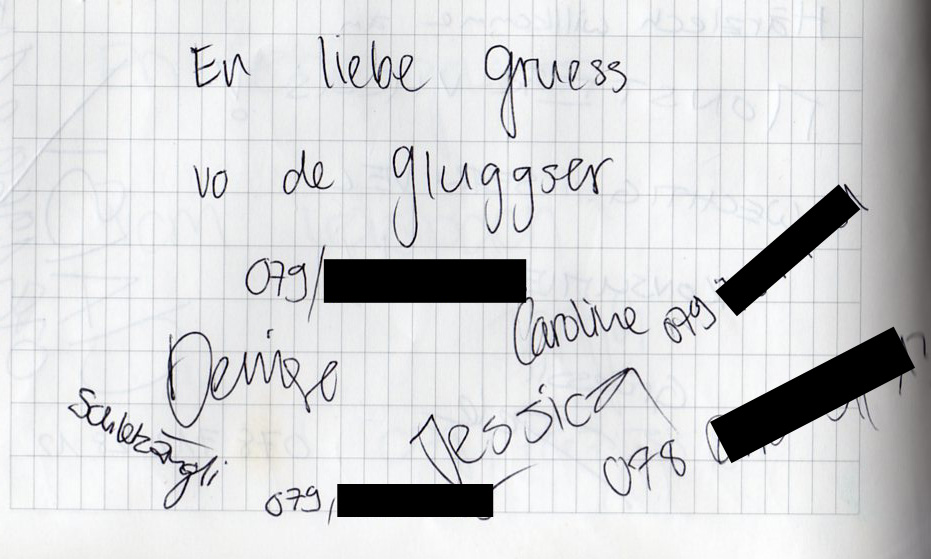 En liebe gruess
vo de gluggser
079/
Caroline 079
Denise
Jessica
078
079/